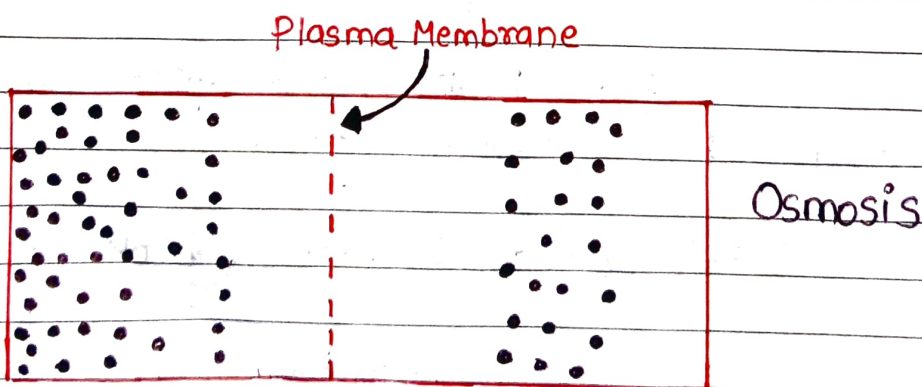 Plasma Membrane
Osmosis